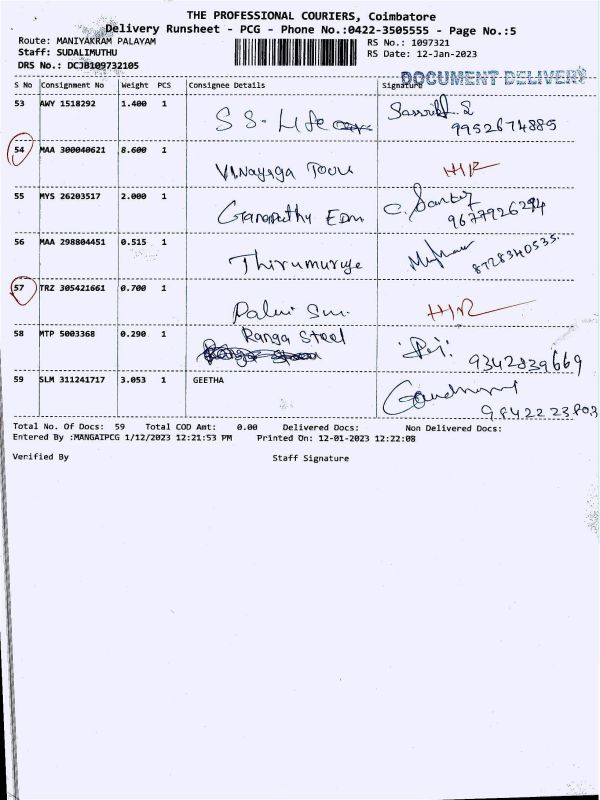 THE PROFESSIONAL COURIERS, Coimbatore
Delivery Runsheet - PCG - Phone No.:0422-3505555 - Page No.:5
Route: MANIYAKRAM PALAYAM RS No.: 1097321
Staff: SUDALIMUTHU RS Date: 12-Jan-2023
DRS No.: DCJB109732105
DOCUMENT DELIVERY
S No Consignment No Weight PCS Consignee Details Signature
53 AWY 1518292 1.400 1 S S. Life
9952674885
54 MAA 300040621 8.600 1
Vinayaga Tours
55 MYS 26203517 2.000 1
Ganapathy Edm
56 MAA 298804451 0.515 1
Thirumuruge
57 TRZ 305421661 0.700 1
Palni
58 MTP 5003368 0.290 1 Ranga Steel
9342839669
59 SLM 311241717 3.053 1 GEETHA
Total No. Of Docs: 59 Total COD Amt: 0.00 Delivered Docs: Non Delivered Docs:
Entered By :MANGAIPCG 1/12/2023 12:21:53 PM Printed On: 12-01-2023 12:22:08
Verified By Staff Signature